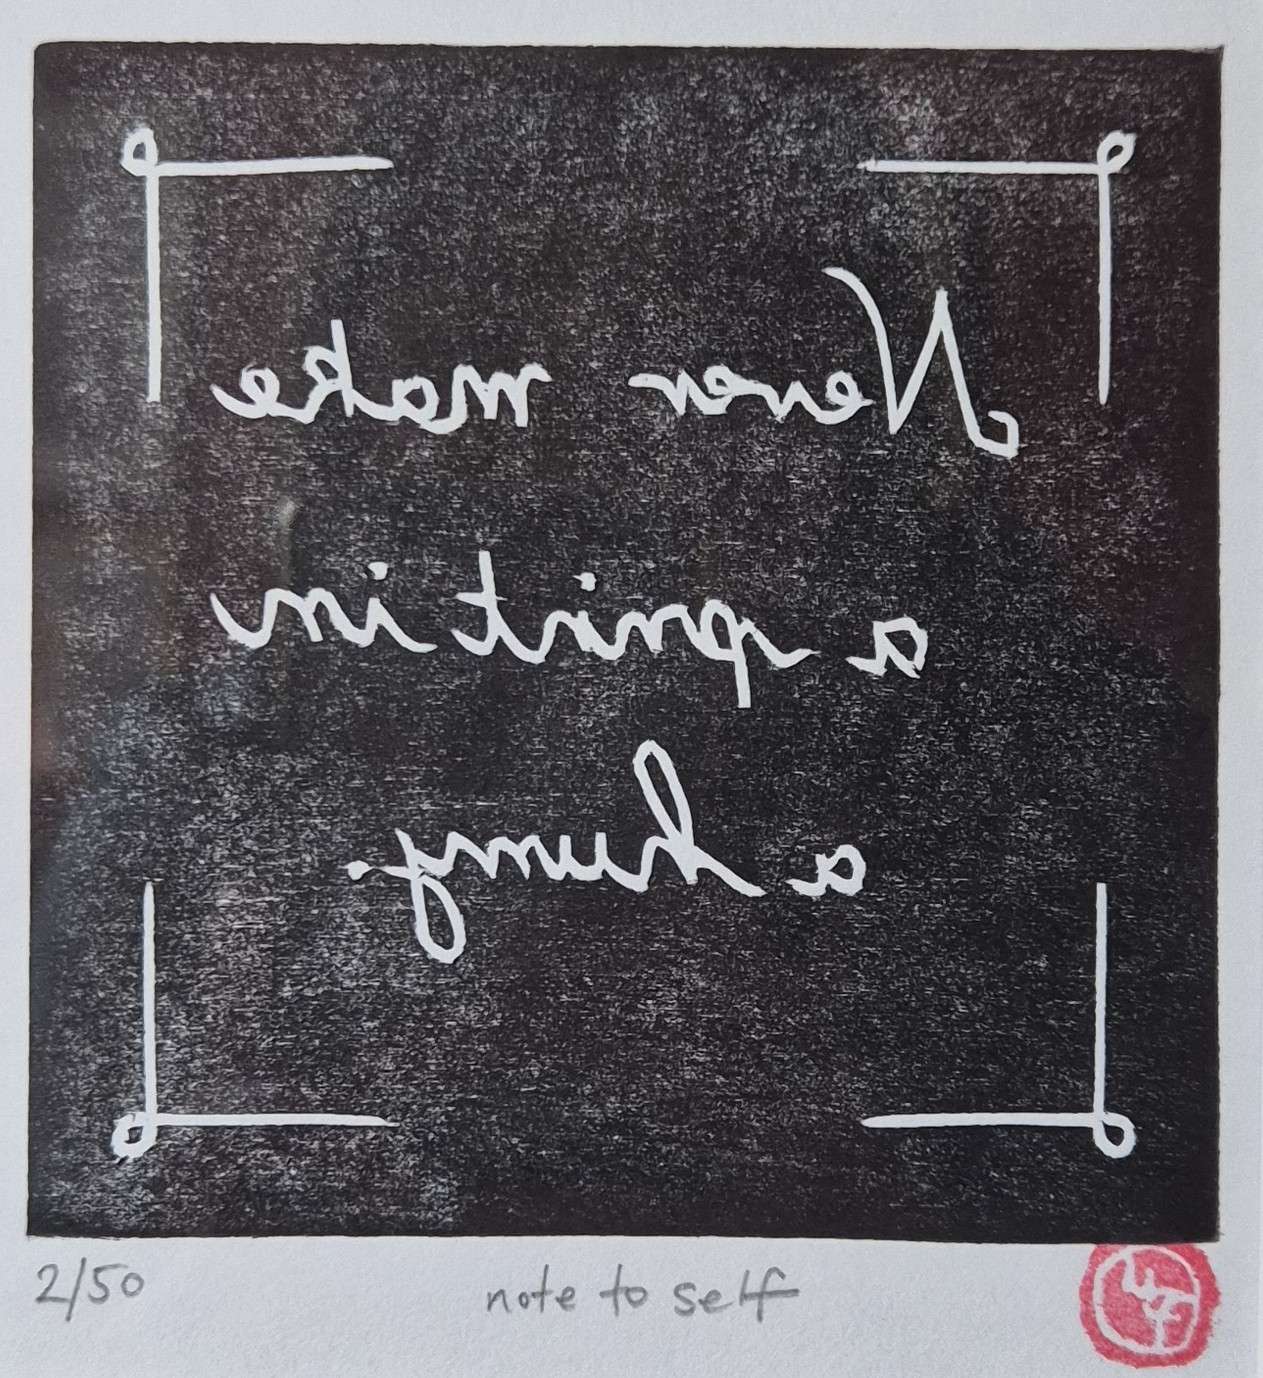 Never make
a print in
a hurry.
2/50 note to self